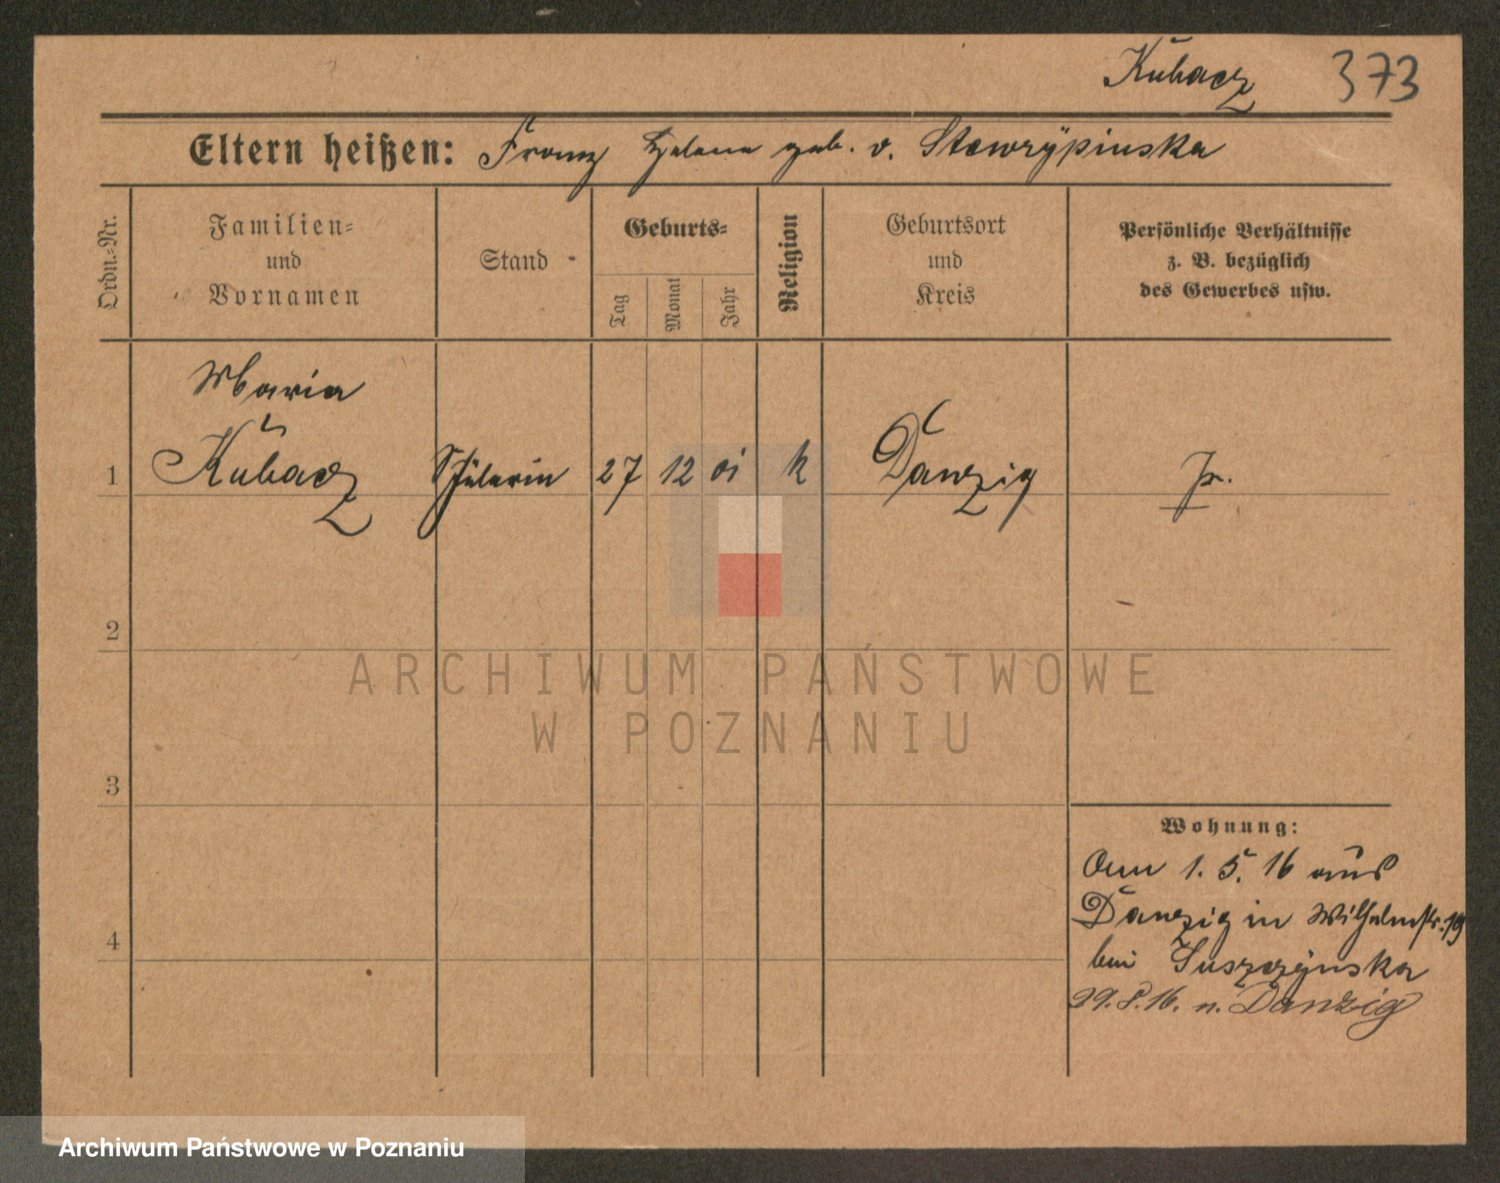 Kubacz 373
Eltern heißen: Franz Helene geb. v.
Ordn.-Nr.
Familien-
und
Vornamen
Stand
Geburts-
Tag
Monat
Jahr
Religion
Geburtsort
und
Kreis
Persönliche Verhältnisse
z. B. bezüglich
des Gewerbes usw.
Maria
1 Kubacz Schülerin 27 12 01 k Danzig Pr.
2
ARCHIWUM PAŃSTWOWE
W POZNANIU
3
Wohnung:
Am 1. 5. 16 aus
Danzig in Wilhelmstr. 19
4
bei Suszczynska
29. 8. 16. n. Danzig
Archiwum Państwowe w Poznaniu